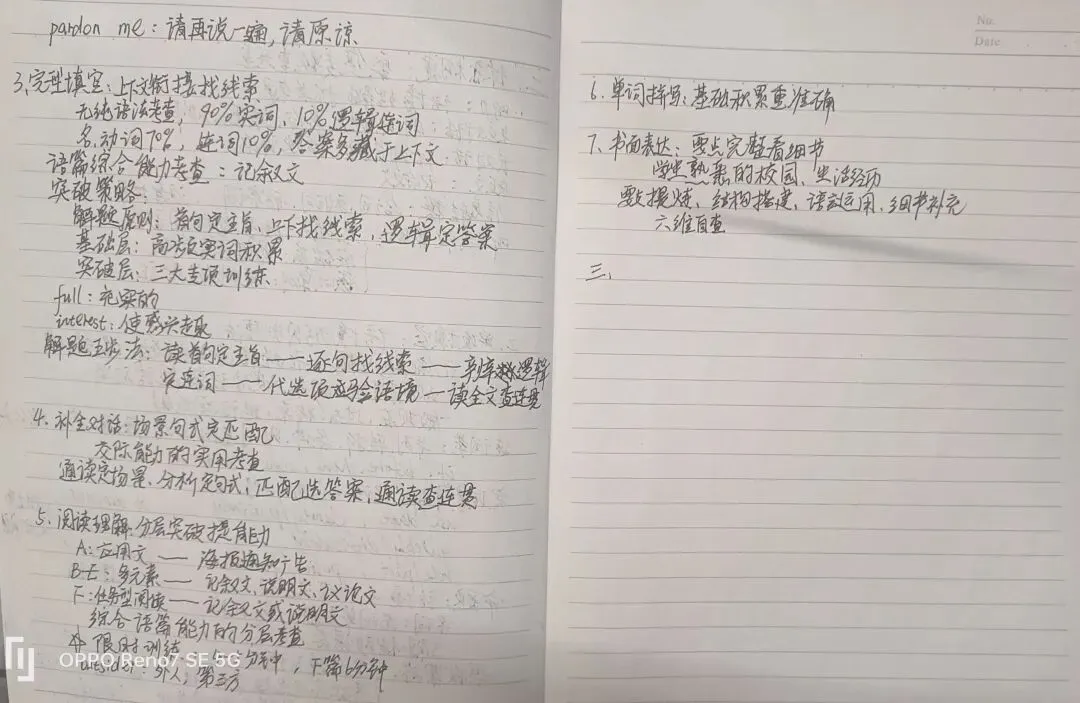 pardon me：请再说一遍，请原谅
3.完型填空：上下文衔接找线索
无纯语法考查，90%实词、10%逻辑连词
名、动词70%，连词10%，答案多藏于上下文
语篇综合能力考查：记叙文
突破策略：
解题原则：首句定主旨、上下找线索，逻辑定答案
基础层：高频实词积累
突破层：三大专项训练
full：充实的
interest：使感兴趣
解题五步法：读首句定主旨——逐句找线索——逻辑
定连词——代选项验语境——读全文查连贯
4.补全对话：场景句式定匹配
交际能力的实用考查
通读定场景、分析定句式，匹配选答案，通读查连贯
5.阅读理解：分层突破提能力
A：应用文——海报通知广告
B-E：多元素——记叙文、说明文、议论文
F：任务型阅读——记叙文或说明文
综合语篇能力的分层考查
限时训练 分钟，F篇6分钟
：外人，第三方
OPPO Reno7 SE 5G
No.
Date
6.单词拼写：基础积累重准确
7.书面表达：要点完整看细节
学生熟悉的校园、生活经历
要点提炼、结构搭建、语言运用、细节补充
六维自查
三、